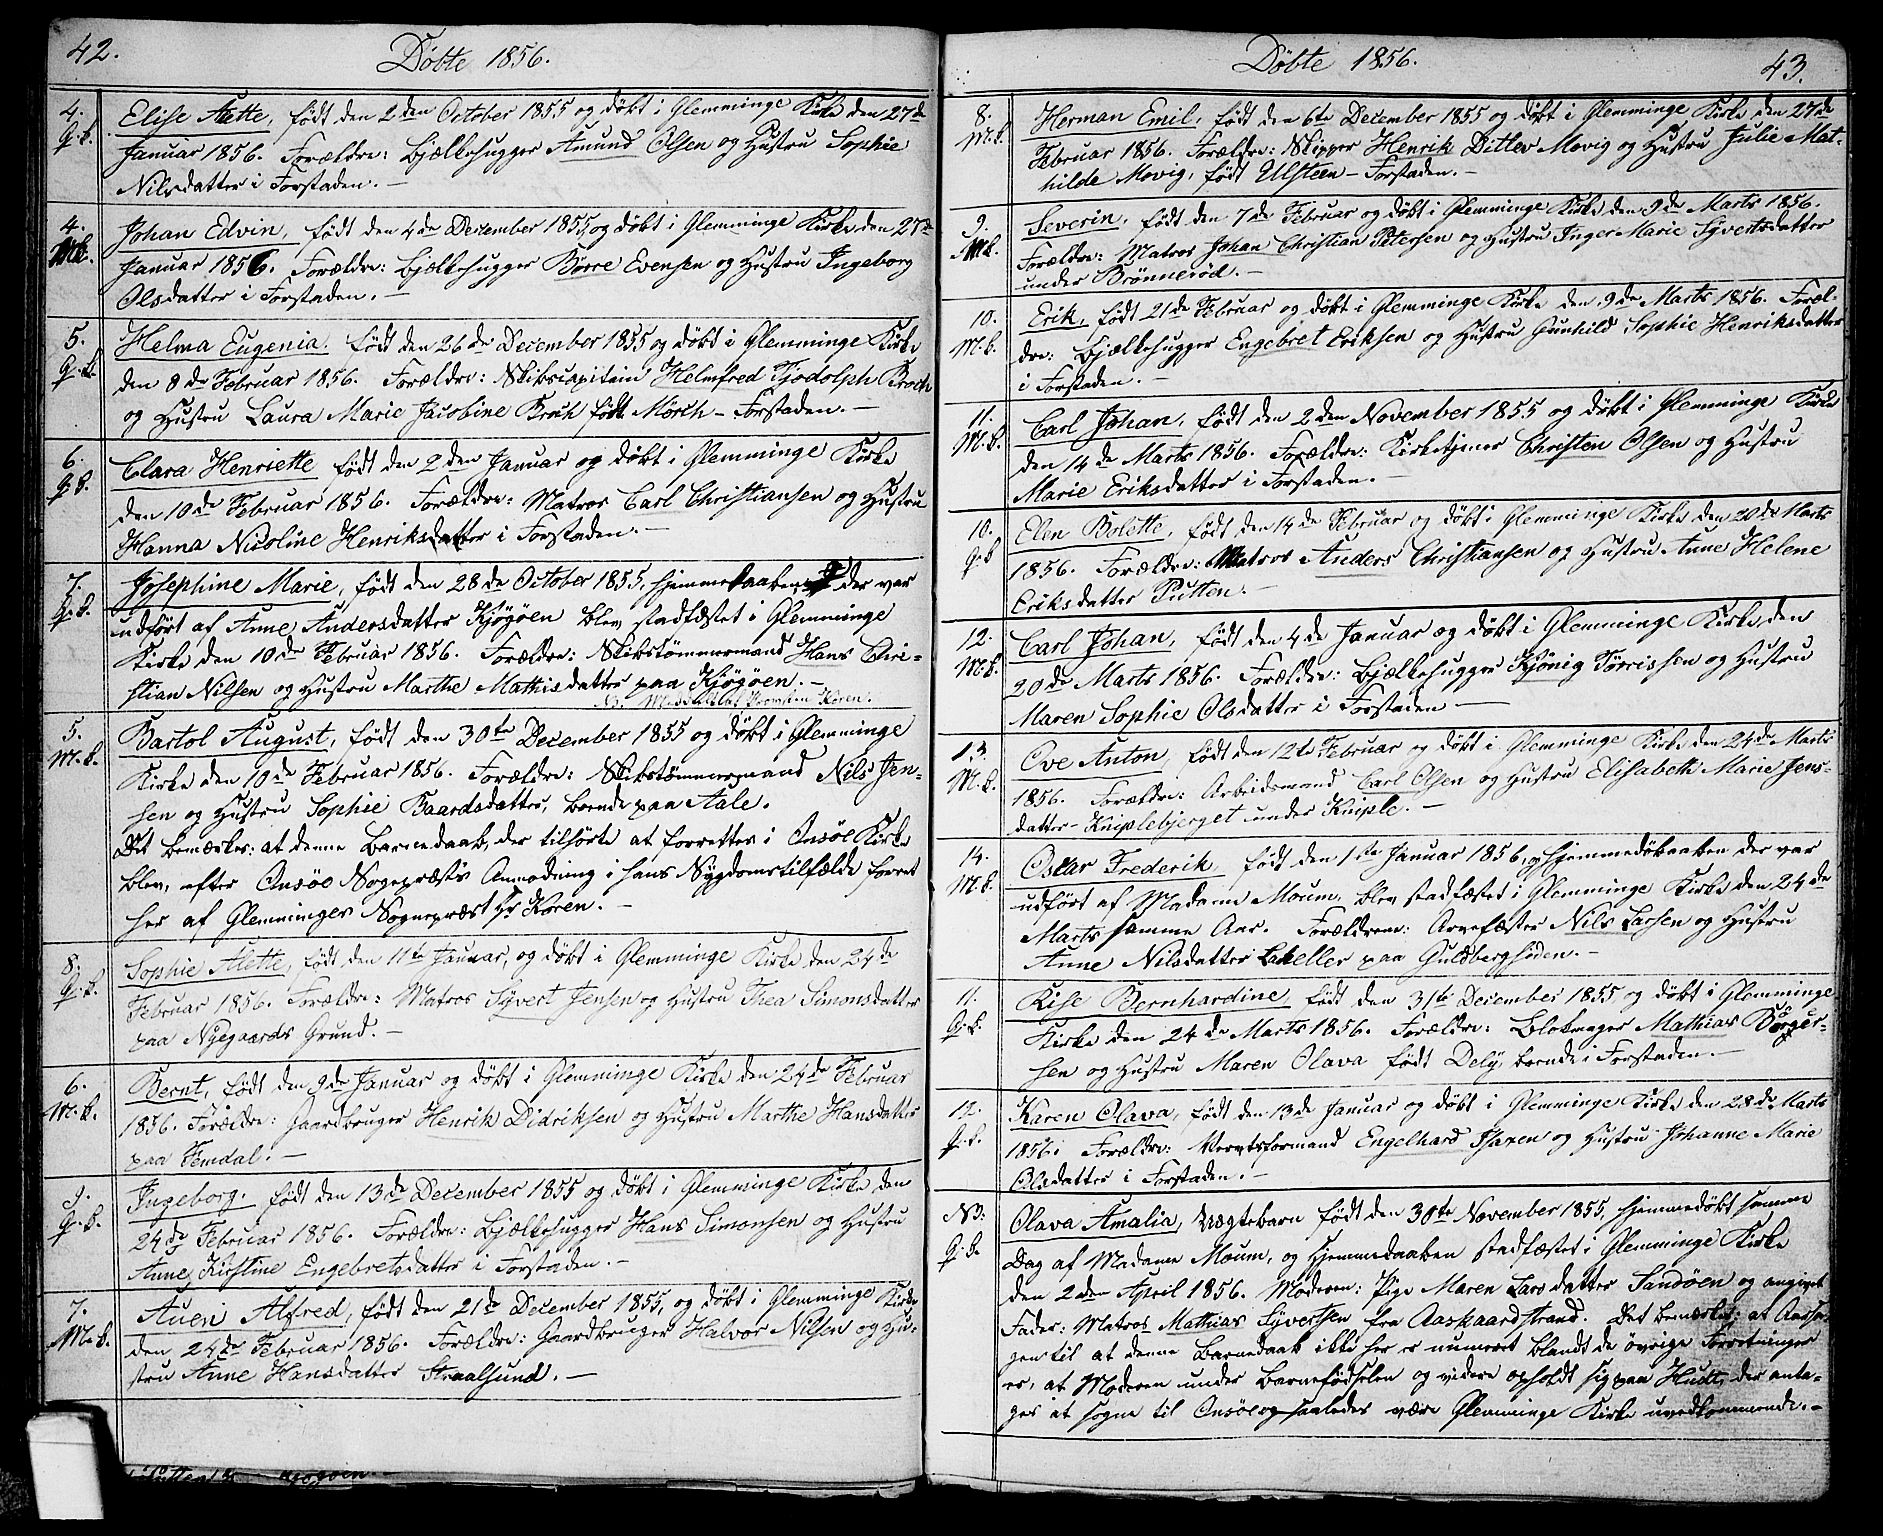 42.
Döbte 1856.
4.
G.b.
Elise Aette, født den 2den October 1855 og døbt i Glemminge Kirke den 27de
Januar 1856. Forældre: Bjælkehugger Amund Olsen og Hustru Sophie
Nilsdatter i Forstaden.-
4.
M.b.
Johan Edvin, født den 4de December 1855, og døbt i Glemminge Kirke den 27de
Januar 1856. Forældre: Bjælkehugger Börre Evensen og Hustru Ingeborg
Olsdatter i Forstaden.-
5.
G.b.
Helma Eugenia. født den 26de December 1855 og døbt i Glemminge Kirke
den 8de Februar 1856. Forældre: Skibscapitain Helmfred Tjodolph Broch
og Hustru Laura Marie Jacobine Broch født Mörch - Forstaden.-
6.
G.b.
Clara Henriette født den 2den Januar og døbt i Glemminge Kirke
den 10de Februar 1856. Forældre: Matros Carl Christiansen og Hustru
Hanna Nicoline Henriksdatter i Forstaden.-
7.
G.b.
Josephine Marie, født den 28de October 1855, hjemmedaaben der var
udført af Anne Andersdatter Kjøgöen blev stadfæstet i Glemminge
Kirke den 10de Februar 1856. Forældre: Skibstømmermand Hans Chri-
stian Nilsen og Hustru Marthe Mathisdatter paa Kjøgöen.-
Koren.
5.
M.b.
Bartol August, født den 30te December 1855 og døbt i Glemminge
Kirke den 10de Februar 1856. Forældre: Skibstømmermand Nils Jen-
sen og Hustru Sophie Baardsdatter, boende paa Aale.
Det bemærkes: at denne Barnedaab, der tilhørte at forrettes i Onsöe Kirke
blev, efter Onsöe Sognepræst's Anmodning i hans Sygdomstilfælde forret
her af Glemminges Sognepræst Hr Koren.-
8.
G.b.
Sophie Alette, født den 11te Januar, og døbt i Glemminge Kirke den 24de
Februar 1856. Forældre: Matros Syvert Jensen og Hustru Thea Simonsdatter
paa Nygaards Grund.-
6.
M.b.
Bernt, født den 9de Januar og døbt i Glemminge Kirke den 24de Februar
1856. Forældre: Gaardbruger Henrik Didriksen og Hustru Marthe Hansdatter
paa Femdal.-
9.
G.b.
Ingeborg. født den 13de December 1855 og døbt i Glemminge Kirke den
24de Februar 1856. Forældre: Bjælkehugger Hans Simonsen og Hustru
Anne Kirstine Engebretsdatter i Forstaden.-
7.
M.b.
Auen Alfred, født den 21de December 1855, og døbt i Glemminge Kirke
den 24de Februar 1856. Forældre: Gaardbruger Halvor Nilsen og Hu-
stru Anne Hansdatter Straalsund.-
Döbte 1856.
43.
8.
M.b.
Herman Emil, født den 6te December 1855 og døbt i Glemminge Kirke den 27de
Februar 1856. Forældre: Skipper Henrik Ditlev Movig og Hustru Julie Mat-
hilde Movig, født Ulsteen - Forstaden.-
9.
M.b.
Severin, født den 7de Februar og døbt i Glemminge Kirke den 9de Marts 1856.
Forældre: Matros Johan Christian Petersen og Hustru Inger Marie Syvertsdatter
under Brönneröd.-
10.
M.b.
Erik, født 21de Februar og døbt i Glemminge Kirke den 9de Marts 1856. Foræl-
dre: Bjælkehugger Engebret Eriksen og Hustru Gunhild Sophie Henriksdatter
i Forstaden.-
11.
M.b.
Carl Johan, født den 2den November 1855 og døbt i Glemminge Kirke
den 14de Marts 1856. Forældre: Kirketjener Christen Olsen og Hustru
Marie Eriksdatter i Forstaden.-
10.
G.b
Elen Bolette, født den 14de Februar og døbt i Glemminge Kirke den 20de Marts
1856. Forældre: Matros Anders Christiansen og Hustru Anne Helene
Eriksdatter Putten.-
12.
M.b.
Carl Johan, født den 4de Januar og døbt i Glemminge Kirke, den
20de Marts 1856. Forældre: Bjælkehugger Kjönig Törrissen og Hustru
Maren Sophie Olsdatter i Forstaden -
13.
M.b.
Ove Anton, født den 12te Februar og døbt i Glemminge Kirke den 24de Marts
1856. Forældre: Arbeidsmand Carl Olsen og Hustru Elisabeth Marie Jens-
datter - Kniplebjerget under Kniple.-
14.
M.b.
Oskar Frederik, født den 1ste Januar 1856, hjemmedøbaaben der var
udført af Madame Moum, blev stadfæstet i Glemminge Kirke den 24de
Marts samme Aar. Forældrene: Arvefæster Nils Larsen og Hustru
Anne Nilsdatter Labeller paa Guldbergsöden.-
11.
G.b.
Rise Bernhardine, født den 31te December 1855 og døbt i Glemminge
Kirke den 24de Marts 1856. Forældre: Blokmager Mathias Börger-
sen og Hustru Maren Olava født Dely, boende i Forstaden.-
12.
G.b.
Karen Olava, født den 13de Januar og døbt i Glemminge Kirke den 28de Marts
1856. Forældre: Værvtsformand Engelhard Isaxen og Hustru Johanne Marie
Olsdatter i Forstaden.-
NB.
G.b.
Olava Amalia, Uægtebarn født den 30te November 1855, hjemmedøbt samme
Dag af Madame Moum, og Hjemmedaaben stadfæstet i Glemminge Kirke
den 2den April 1856. Moderen: Pige Maren Larsdatter Sandöen og angivet
Fader: Matros Mathias Syvertsen fra Aasgaardstrand. Det bemærkes: at Aarsa-
gen til at denne Barnedaab ikke her er numret blandt de övrige Forretninger
er, at Moderen under Barnefödselen og videre opholdt sig paa Hudt, der anta-
ges at sogne til Onsöe og saaledes være Glemminge Kirke uvedkommende.-